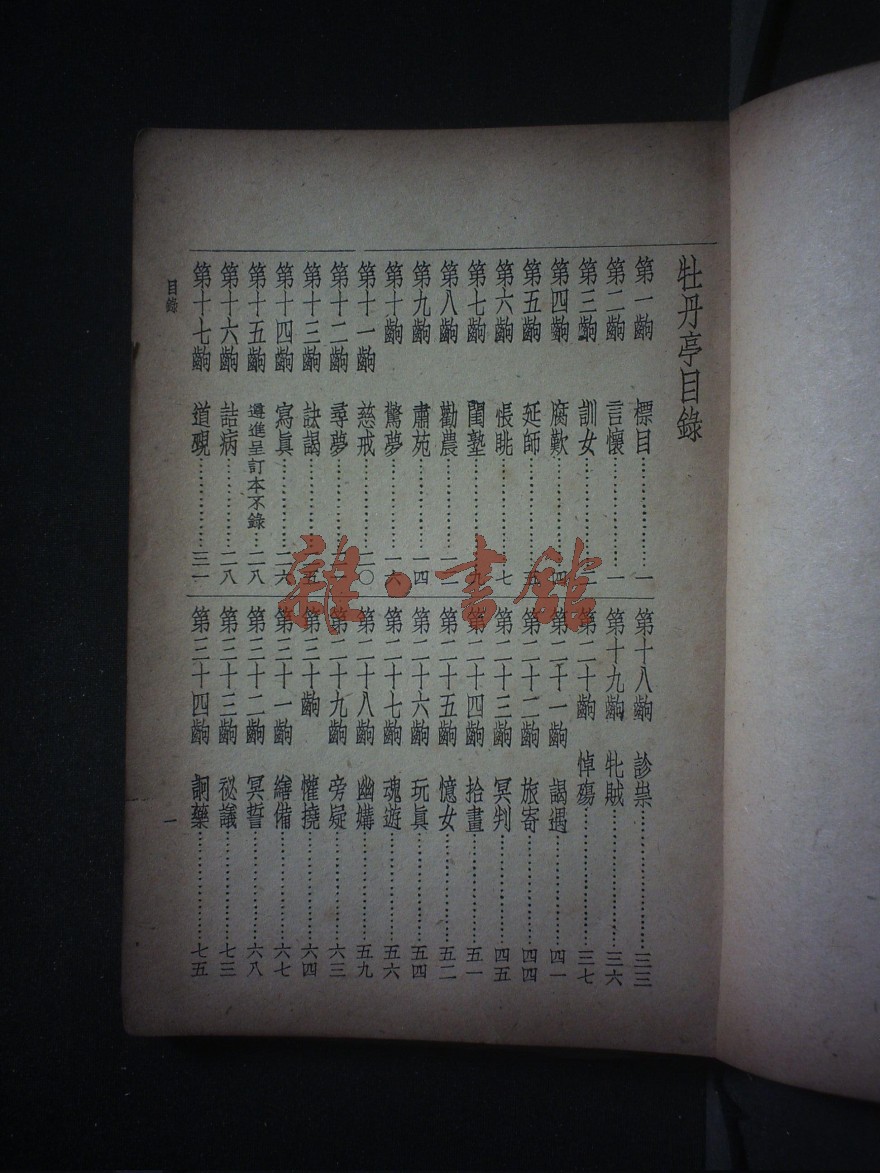 牡丹亭目錄
第一齣 標目……………一
第二齣 言懷……………一
第三齣 訓女……………二
第四齣 腐歎……………四
第五齣 延師……………五
第六齣 悵眺……………七
第七齣 閨塾……………九
第八齣 勸農……………
第九齣 肅苑……………一四
第十齣 驚夢……………一六
第十一齣 慈戒……………二〇
第十二齣 尋夢……………
第十三齣 訣謁……………五
第十四齣 寫眞……………二六
第十五齣 遵進呈訂本不錄……二八
第十六齣 詰病……………二八
第十七齣 道覡……………三一
第十八齣 診祟……………三三
第十九齣 牝賊……………三六
第二十齣 悼殤……………三七
第二十一齣 謁遇……………四一
第二十二齣 旅寄……………四四
第二十三齣 冥判……………四五
第二十四齣 拾畫……………五一
第二十五齣 憶女……………五二
第二十六齣 玩眞……………五四
第二十七齣 魂遊……………五六
第二十八齣 幽媾……………五九
第二十九齣 旁疑……………六三
第三十齣 懽撓……………六四
第三十一齣 繕備……………六七
第三十二齣 冥誓……………六八
第三十三齣 祕議……………七三
第三十四齣 詗藥……………七五
目錄
一
雜·書館